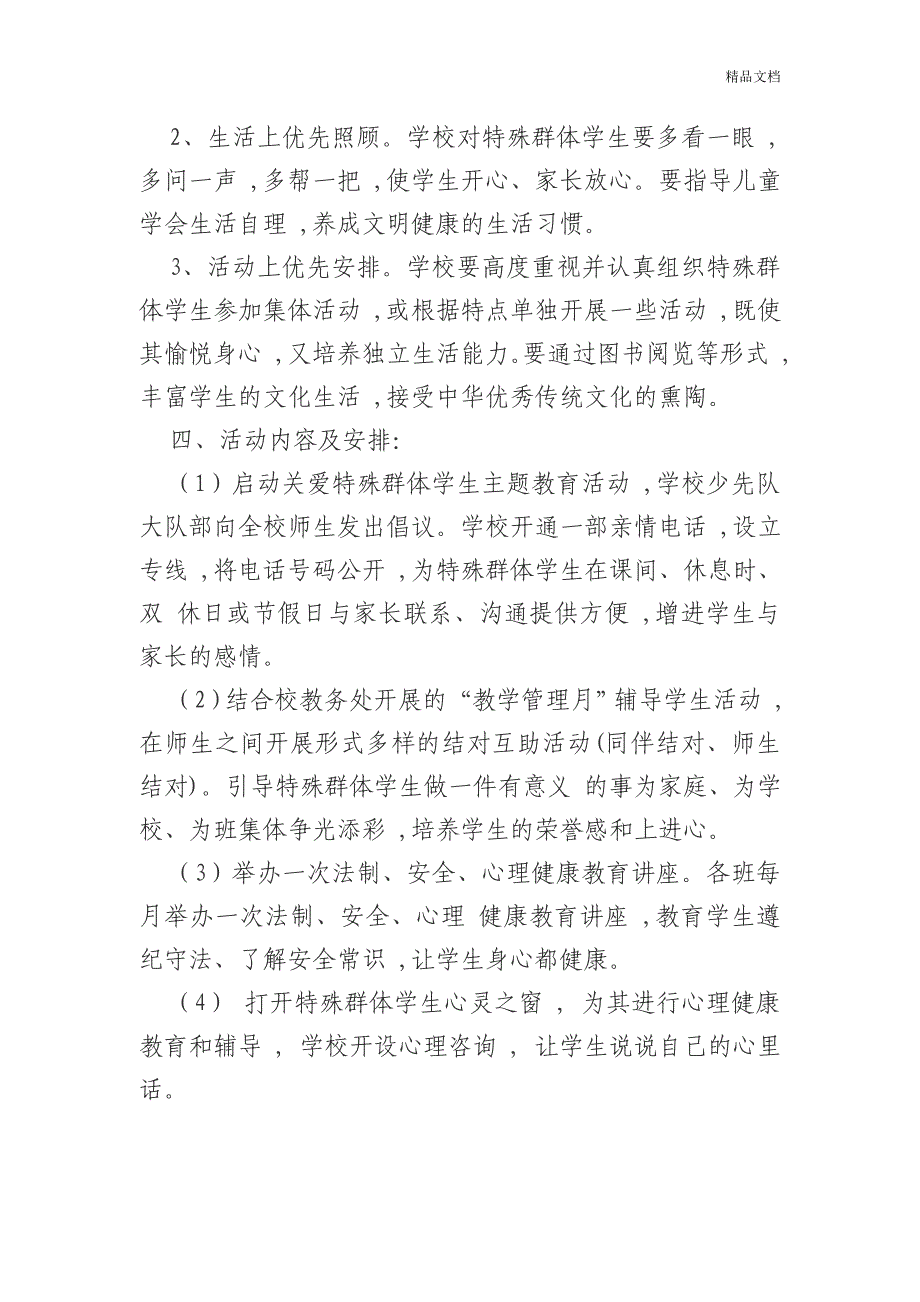 精品文档
2、生活上优先照顾。学校对特殊群体学生要多看一眼 ，
多问一声 ，多帮一把 ，使学生开心、家长放心。要指导儿童
学会生活自理 ，养成文明健康的生活习惯。
3、活动上优先安排。学校要高度重视并认真组织特殊群
体学生参加集体活动 ，或根据特点单独开展一些活动 ，既使
其愉悦身心 ，又培养独立生活能力。要通过图书阅览等形式 ，
丰富学生的文化生活 ，接受中华优秀传统文化的熏陶。
四、活动内容及安排：
（1）启动关爱特殊群体学生主题教育活动 ，学校少先队
大队部向全校师生发出倡议。学校开通一部亲情电话 ，设立
专线 ，将电话号码公开 ，为特殊群体学生在课间、休息时、
双 休日或节假日与家长联系、沟通提供方便 ，增进学生与
家长的感情。
（2）结合校教务处开展的“教学管理月”辅导学生活动 ，
在师生之间开展形式多样的结对互助活动(同伴结对、师生
结对)。引导特殊群体学生做一件有意义 的事为家庭、为学
校、为班集体争光添彩 ，培养学生的荣誉感和上进心。
（3）举办一次法制、安全、心理健康教育讲座。各班每
月举办一次法制、安全、心理 健康教育讲座 ，教育学生遵
纪守法、了解安全常识 ，让学生身心都健康。
（4） 打开特殊群体学生心灵之窗 ， 为其进行心理健康
教育和辅导 ， 学校开设心理咨询 ， 让学生说说自己的心里
话。